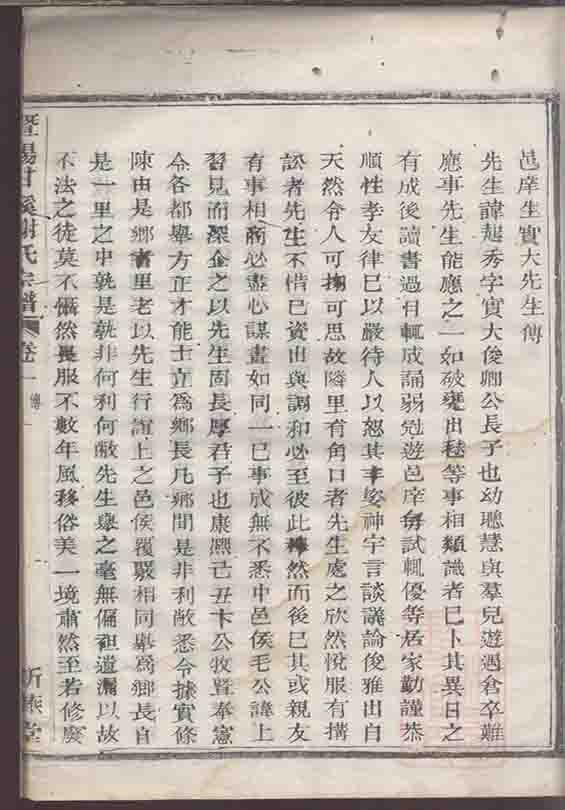 邑庠生實大先生傳
先生諱起秀字實大俊卿公長子也幼聰慧與羣兒遊遇倉卒難
應事先生能應之一如破甕出毬等事相類識者已卜其異日之
有成後讀書過目輒成誦弱冠遊邑庠每試輒優等居家勤謹恭
順性孝友律己以嚴待人以恕其丰姿神宇言談議論俊雅出自
天然令人可掬可思故隣里有角口者先生處之欣然悅服有搆
訟者先生不惜已資出與調和必至彼此釋然而後已其或親友
有事相商必盡心謀畫如同一己事成無不悉中邑侯毛公諱上
習見而深企之以先生固長厚君子也康熙己丑卞公牧暨奉憲
令各都舉方正才能士立為鄉長凡鄉間是非利敝悉令據實條
陳由是鄉耆里老以先生行誼上之邑侯覆嚴相同舉為鄉長自
是一里之中孰是孰非何利何敝先生舉之毫無偏袒遺漏以故
不法之徒莫不懾然畏服不數年風移俗美一境肅然至若修廢
暨陽甘溪謝氏宗譜 卷一 傳